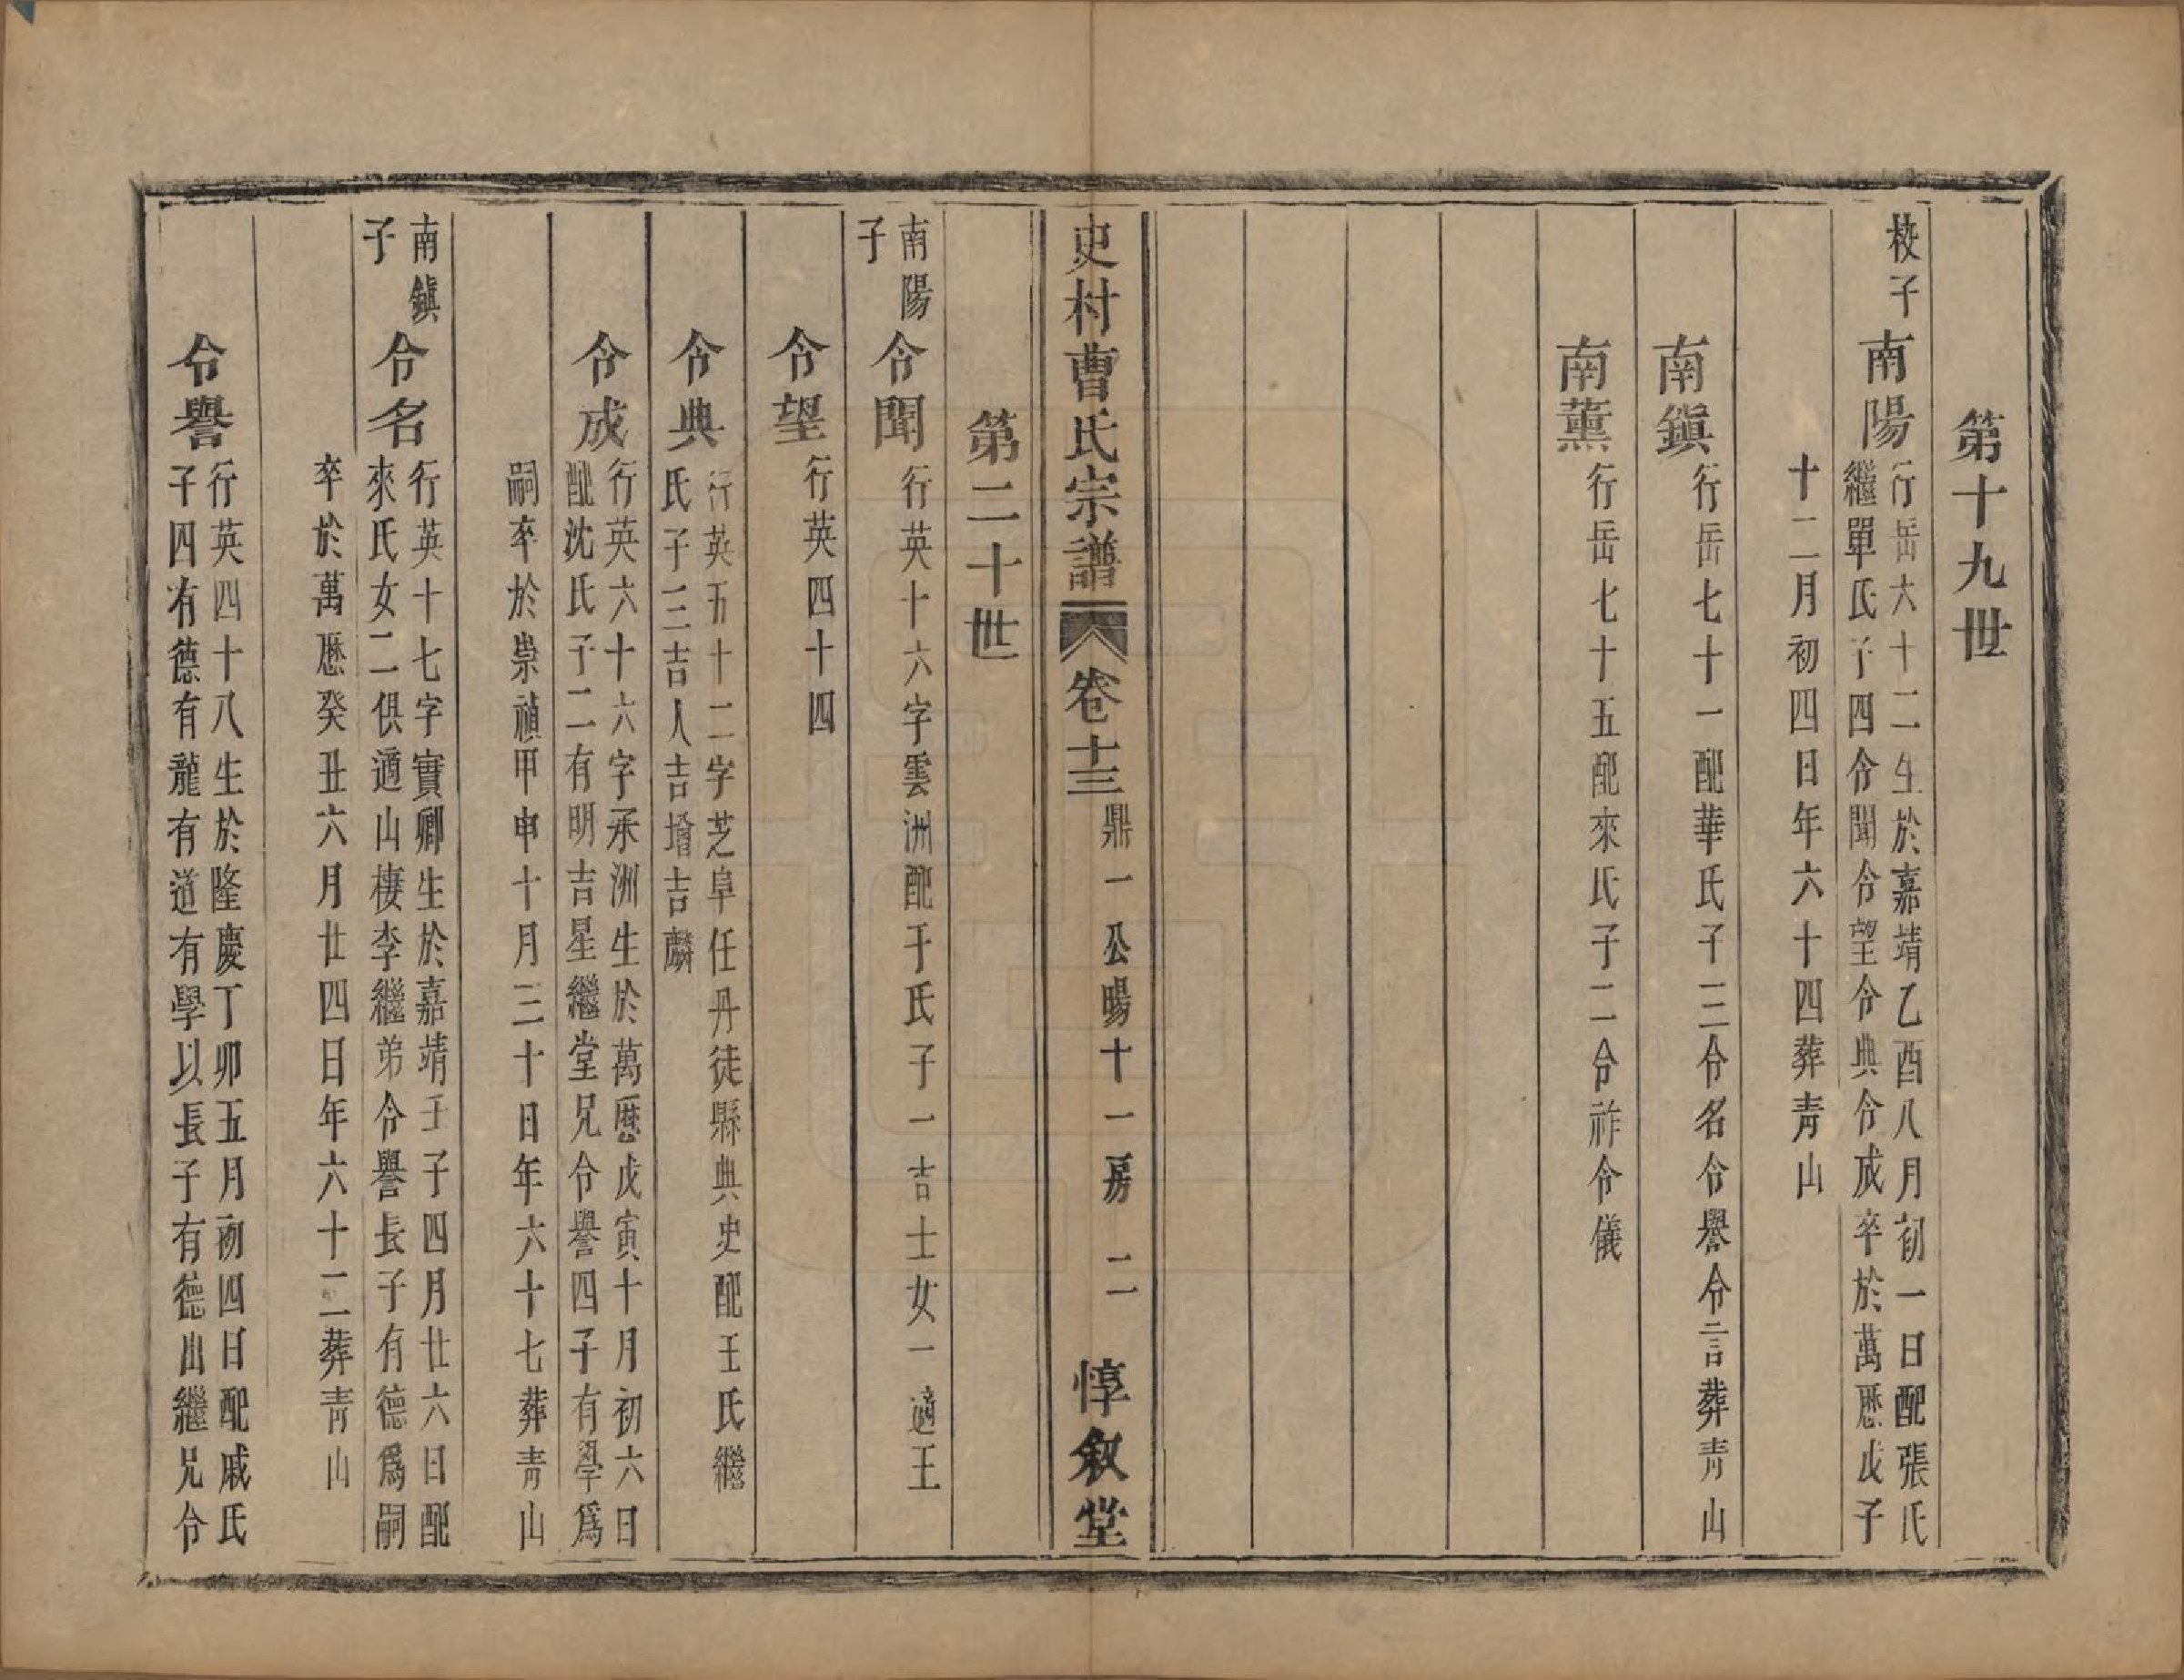 第十九世
校子
南陽
行岳六十二生於嘉靖乙酉八月初一日配張氏
繼單氏子四令聞令望令典令成卒於萬厯戊子
十二月初四日年六十四葬青山
南鎭
行岳七十一配華氏子三令名令譽令言葬青山
南薰
行岳七十五配來氏子二令祚令儀
史村曹氏宗譜
卷十三
鼎一公暘十一房 二
惇敘堂
第二十世
南陽
子
令聞
行英十六字雲洲配于氏子一吉士女一適王
令望
行英四十四
令典
行英五十二字芝阜任丹徒縣典史配王氏繼
氏子三吉人吉增吉麟
令成
行英六十六字承洲生於萬厯戊寅十月初六日
配沈氏子二有明吉星繼堂兄令譽四子有學爲
嗣卒於崇禎甲申十月三十日年六十七葬青山
南鎭
子
令名
行英十七字實卿生於嘉靖壬子四月廿六日配
來氏女二俱適山棲李繼弟令譽長子有德爲嗣
卒於萬厯癸丑六月廿四日年六十二葬青山
令譽
行英四十八生於隆慶丁卯五月初四日配戚氏
子四有德有龍有道有學以長子有德出繼兄令